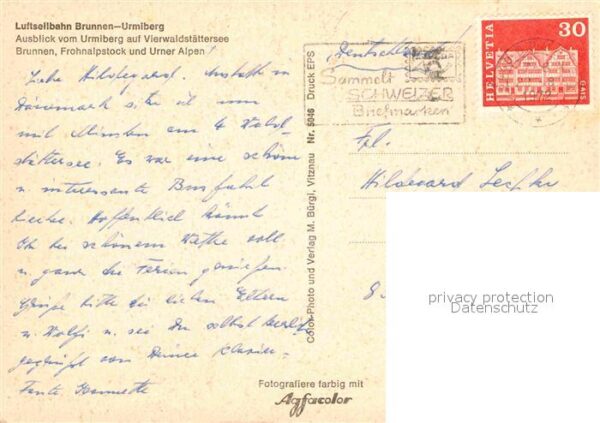 Luftseilbahn Brunnen—Urmiberg
Ausblick vom Urmiberg auf Vierwaldstättersee
Brunnen, Frohnalpstock und Urner Alpen
Liebe Hildegard. Anstatt in
Dänemark sitze ich nun
mit Münster am 4 Wald-
stättersee. Es war eine schöne
u. interessante Busfahrt
hierher. Hoffentlich könnt
Ihr bei schönem Wetter voll
u. ganz die Ferien genießen.
Grüße bitte die lieben Eltern
u. Wolfi u. sei Du selbst herzlich
gegrüßt von Deiner Klavier-
Tante Hannette
Color-Photo und Verlag M. Bürgi, Vitznau Nr. 5046 Druck EPS
Deutschland
Sammelt
SCHWEIZER
Briefmarken
HELVETIA
30
GAIS
Frl.
Hildegard
8
privacy protection
Datenschutz
Fotografiere farbig mit
Agfacolor